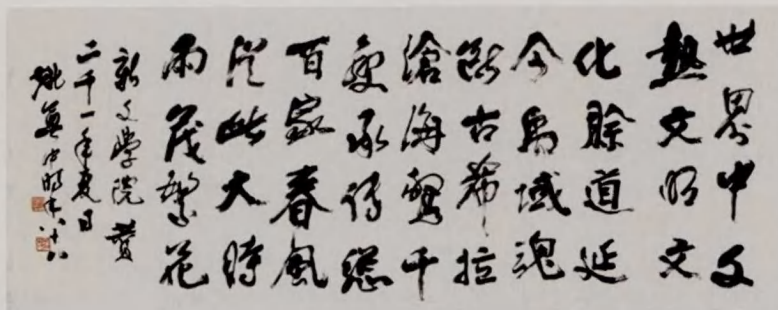 世界中文
熱文明文
化賒道延
今禹域魂
斷古希拉
滄海千
變承傳總
百家春風
從此大時
雨茂繁花
新文學院
二千一年夏日
姚奠中時年八十八